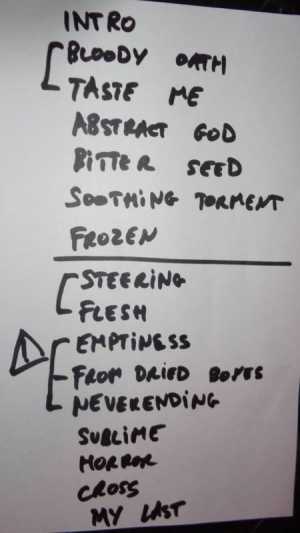 INTRO
BLOODY OATH
TASTE ME
ABSTRACT GOD
BITTER SEED
SOOTHING TORMENT
FROZEN
STEERING
FLESH
EMPTINESS
FROM DRIED BONES
NEVERENDING
SUBLIME
HORROR
CROSS
MY LAST